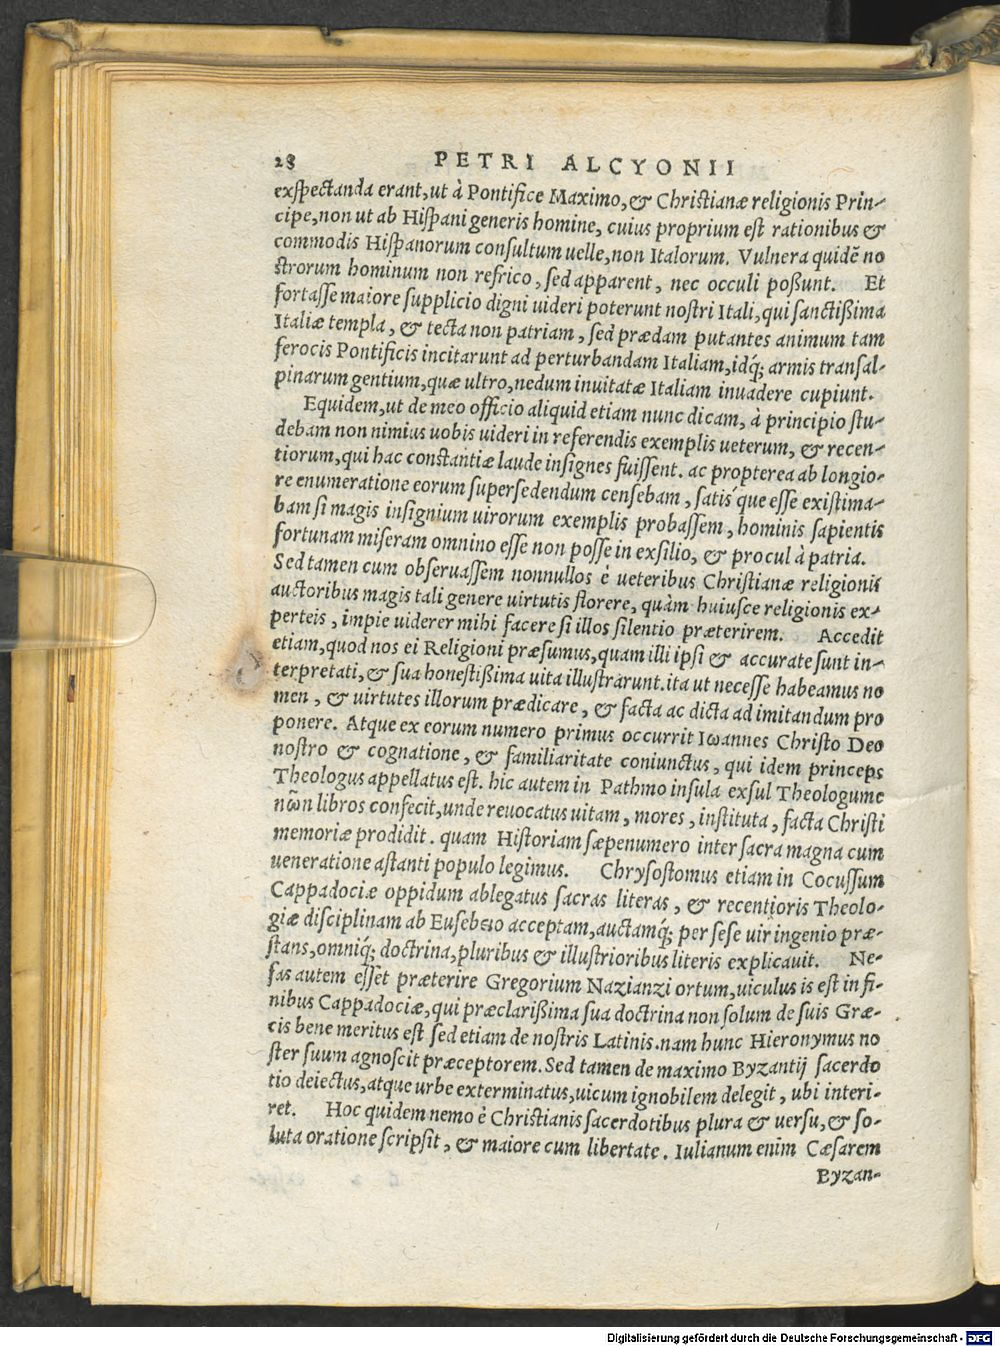 28 PETRI ALCYONII
exspectanda erant, ut à Pontifice Maximo, & Christianæ religionis Prin-
cipe, non ut ab Hispani generis homine, cuius proprium est rationibus &
commodis Hispanorum consultum uelle, non Italorum. Vulnera quidẽ no
strorum hominum non refrico, sed apparent, nec occuli poßunt. Et
fortasse maiore supplicio digni uideri poterunt nostri Itali, qui sanctißima
Italiæ templa, & tecta non patriam, sed prædam putantes animum tam
ferocis Pontificis incitarunt ad perturbandam Italiam, idq́; armis transal-
pinarum gentium, quæ ultro, nedum inuitatæ Italiam inuadere cupiunt.
Equidem, ut de meo officio aliquid etiam nunc dicam, à principio stu-
debam non nimius uobis uideri in referendis exemplis ueterum, & recen-
tiorum, qui hac constantiæ laude insignes fuissent. ac propterea ab longio-
re enumeratione eorum supersedendum censebam, satis´que esse existima-
bam si magis insignium uirorum exemplis probassem, hominis sapientis
fortunam miseram omnino esse non posse in exsilio, & procul à patria.
Sed tamen cum obseruassem nonnullos è ueteribus Christianæ religionis
auctoribus magis tali genere uirtutis florere, quàm huiusce religionis ex-
perteis, impie uiderer mihi facere si illos silentio præterirem. Accedit
etiam, quod nos ei Religioni præsumus, quam illi ipsi & accurate sunt in-
terpretati, & sua honestißima uita illustrarunt. ita ut necesse habeamus no
men, & uirtutes illorum prædicare, & facta ac dicta ad imitandum pro
ponere. Atque ex eorum numero primus occurrit Iωannes Christo Deo
nostro & cognatione, & familiaritate coniunctus, qui idem princeps
Theologus appellatus est. hic autem in Pathmo insula exsul Theologume
nω̃n libros confecit, unde reuocatus uitam, mores, instituta, facta Christi
memoriæ prodidit. quam Historiam sæpenumero inter sacra magna cum
ueneratione astanti populo legimus. Chrysostomus etiam in Cocussum
Cappadociæ oppidum ablegatus sacras literas, & recentioris Theolo-
giæ disciplinam ab Eusebio acceptam, auctamq́; per sese uir ingenio præ-
stans, omniq́; doctrina, pluribus & illustrioribus literis explicauit. Ne-
fas autem esset præterire Gregorium Nazianzi ortum, uiculus is est in fi-
nibus Cappadociæ, qui præclarißima sua doctrina non solum de suis Græ-
cis bene meritus est sed etiam de nostris Latinis. nam hunc Hieronymus no
ster suum agnoscit præceptorem. Sed tamen de maximo Byzantij sacerdo
tio deiectus, atque urbe exterminatus, uicum ignobilem delegit, ubi interi-
ret. Hoc quidem nemo è Christianis sacerdotibus plura & uersu, & so-
luta oratione scripsit, & maiore cum libertate. Iulianum enim Cæsarem
Byzan-
Digitalisierung gefördert durch die Deutsche Forschungsgemeinschaft - DFG